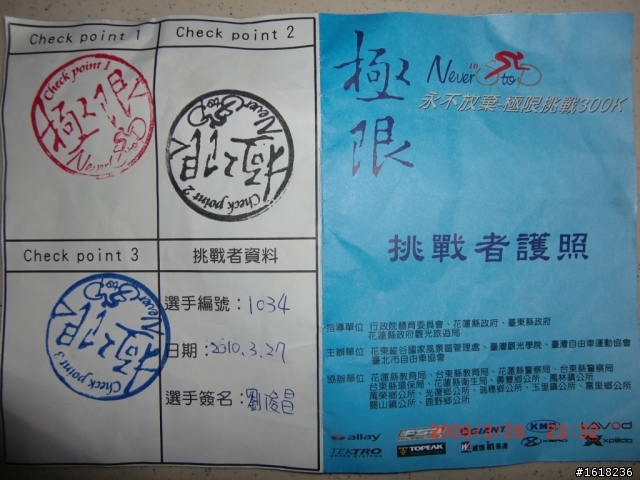 Check point 1
Check point 2
Check point 1
極限
Never Stop
Check point 2
極限
Never Stop
Check point 3
挑戰者資料
Check point 3
極限
Never Stop
選手編號：1034
日期：2010.3.27
選手簽名：劉俊昌
極限
Never Stop
永不放棄-極限挑戰300K
挑戰者護照
指導單位 行政院體育委員會、花蓮縣政府、臺東縣政府
花蓮縣政府觀光旅遊局
主辦單位 花東縱谷國家風景區管理處、臺灣觀光學院、臺灣自由車運動協會
臺北市自由車協會
協辦單位 花蓮縣教育局、台東縣教育局、花蓮縣警察局、台東縣警察局
台東縣環保局、花蓮縣衛生局、壽豐鄉公所、鳳林鎮公所
萬榮鄉公所、光復鄉公所、瑞穗鄉公所、玉里鎮公所、富里鄉公所
關山鎮公所、鹿野鄉公所
allay
FSA
GIANT
KMC
TEKTRO
TOPEAK
xpedo
#1618236